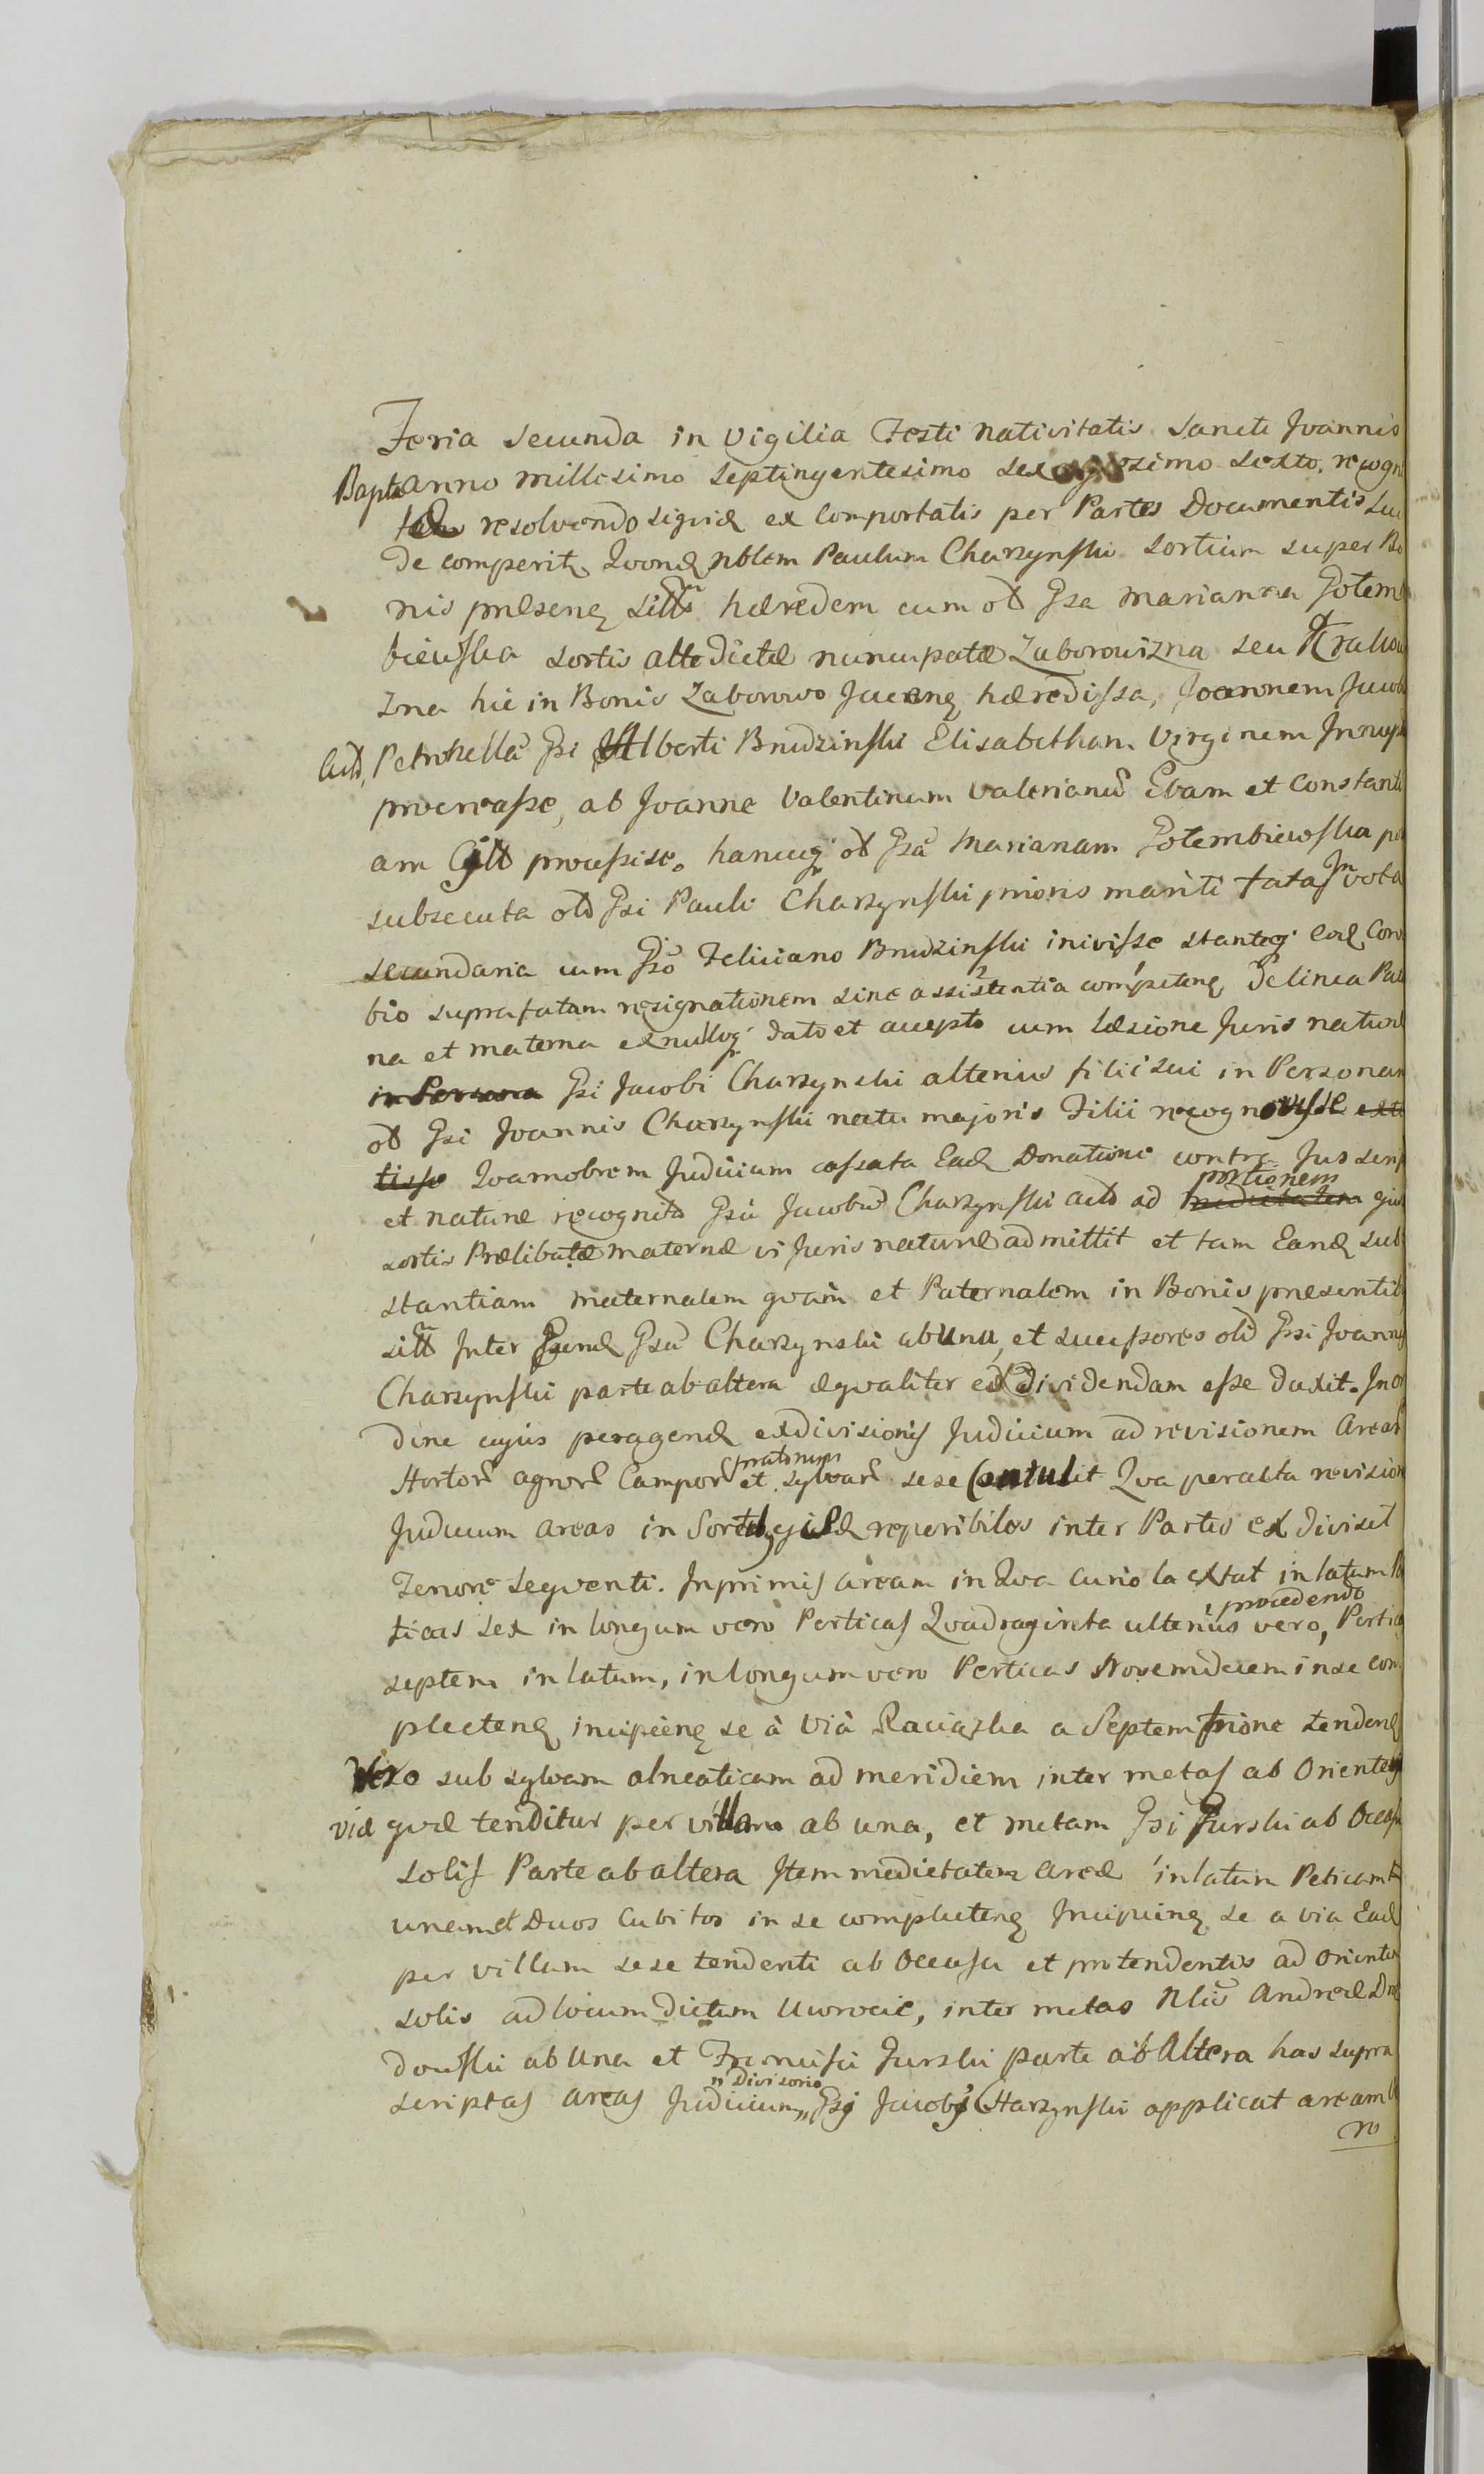 Feria secunda in Vigilia Festi nativitatis Sancti Joannis
Bapte anno millesimo septingentesimo sexagesimo sexto. recogn
resolvendo siquid ex comportatis per Partes Documentis
de comperit, Quond nblem Paulum Charzynski sortium super Bo
nis præsen sitt hæredem cum Gsa Marianna Gotem
biewska sortis alte dictæ nuncupatæ Zaborowizna seu
zna hic in Bonis Zaborowo Jacen hæredissa, Joannem Jacob
act, Petronellã Gsi Alberti Brudzinski Elisabetham Virginem Innup
procreasse, ab Joanne Valentinum Valerianũ Evam et Constanti
am processisse. hancq Gsã Mariannam Gotembiewska
subsecuta old Gsi Pauli Charzynski prioris mariti fata In vota
secundaria cum Gso Feliciano Brudzinski inivisse stanteq eod Conu
bio suprafatam resignationem sine assistentia competen de linea Pate
na et materna ex nullog dato et accepto cum læsione Juris naturæ
in Persona Gsi Jacobi Charzynski alterius filii sui in Personam
Gsi Joannis Charzynski natu majoris Filii recognovisse
tisse Quamobrem Judicium cassata Ead Donatione contra Jus scrip
et naturæ recognita Gsũ Jacobũ Charzynski act ad medietatem portionem
sortis Prælibatæ maternæ vi Juris naturæ admittit et tam Eand sub
stantiam maternalem quàm et Paternalem in Bonis præsentib
sitt Inter Gsũ Charzynski ab una, et successores old Gsi Joannis
Charzynski parte ab altera æqualiter exdividendam esse duxit. In or
dine cujus peragend exdivisionis Judicium ad revisionem Arear
Hortor agror Campor pratorum et sylvar sese Contulit Qva peracta revision
Judicium areas in reperibiles inter Partes exdivisit
Tenore sequenti. Inprimis aream in Qva curiola extat in latum
ticas sex in longum vero Perticas Quadraginta ulterius procedendo vero, Pertic
septem in latum, in longum vero Perticas Novemdecem in se com
plecten incipien se à Via Raciąska a Septemtrione tenden
Vero sub sylvam alneaticam ad meridiem inter metas ab Oriente
viæ quæ tenditur per villam ab una, et metam Gsi Jurski ab Occasu
solis Parte ab altera Item medietatem areæ in latum
unam et Duos Cubitos in se complecten Incipien se a via Ead
per villam sese tendenti ab Occasu et protendentis ad Orientem
solis ad locum dictum Uwrocie, inter metas Andreæ
dowski ab Una et Francisci Jurski parte ab Altera has supra
scriptas areas Judicium Divisorio Gsi Jacobi Charzynski applicat aream
ro